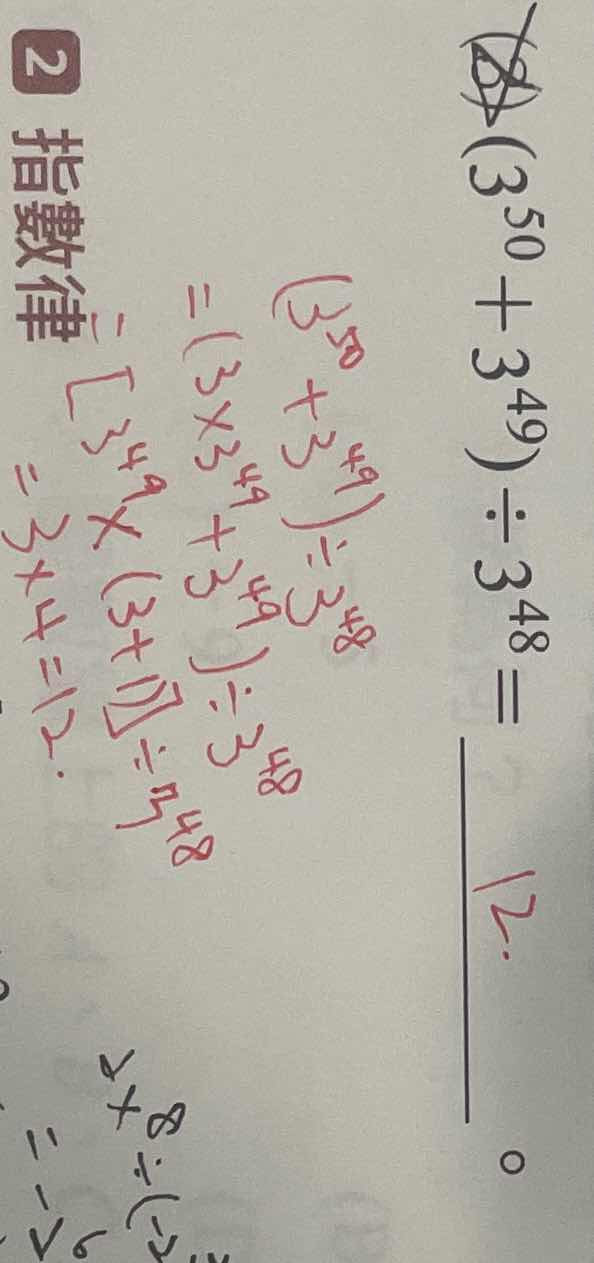 (8) (3⁵⁰ + 3⁴⁹) ÷ 3⁴⁸ = 12. 。
(3⁵⁰ + 3⁴⁹) ÷ 3⁴⁸
= (3 × 3⁴⁹ + 3⁴⁹) ÷ 3⁴⁸
= [3⁴⁹ × (3+1)] ÷ 3⁴⁸
= 3 × 4 = 12.
2 指數律